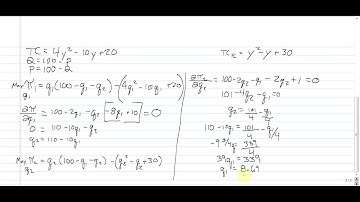 TC = 4y² - 10y + 20
Q = 100 - P
P = 100 - Q
Max π₁ = q₁(100 - q₁ - q₂) - (4q₁² - 10q₁ + 20)
q₁
∂π/∂q₁ = 100 - 2q₁ - q₂ - 8q₁ + 10 = 0
0 = 110 - 10q₁ - q₂
q₂ = 110 - 10q₁
Max π₂ = q₂(100 - q₁ - q₂) - (q₂² - q₂ + 30)
q₂
TC₂ = y² - y + 30
∂π₂/∂q₂ = 100 - 2q₂ - q₁ - 2q₂ + 1 = 0
101 - 4q₂ - q₁ = 0
q₂ = 101/4 - q₁/4
110 - 10q₁ = 101/4 - q₁/4
-9 3/4 q₁ = 339/4
39q₁ = 339
q₁ = 8.69